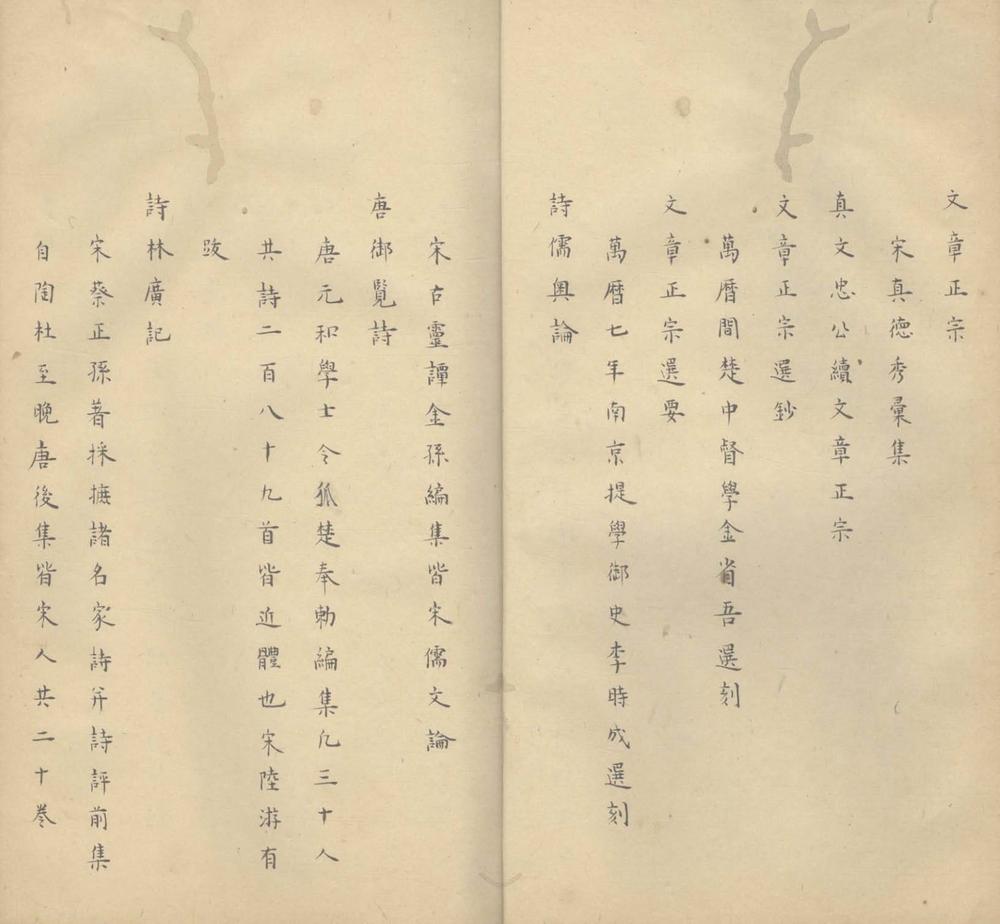 文章正宗
宋真德秀彙集
真文忠公續文章正宗
文章正宗選鈔
萬曆間楚中督學金省吾選刻
文章正宗選要
萬曆七年南京提學御史李時成選刻
詩儒奧論
宋古靈譚金孫編集皆宋儒文論
唐御覽詩
唐元和學士令狐楚奉勅編集凡三十人
共詩二百八十九首皆近體也宋陸游有
跋
詩林廣記
宋蔡正孫著採摭諸名家詩并詩評前集
自陶杜至晚唐後集皆宋人共二十卷